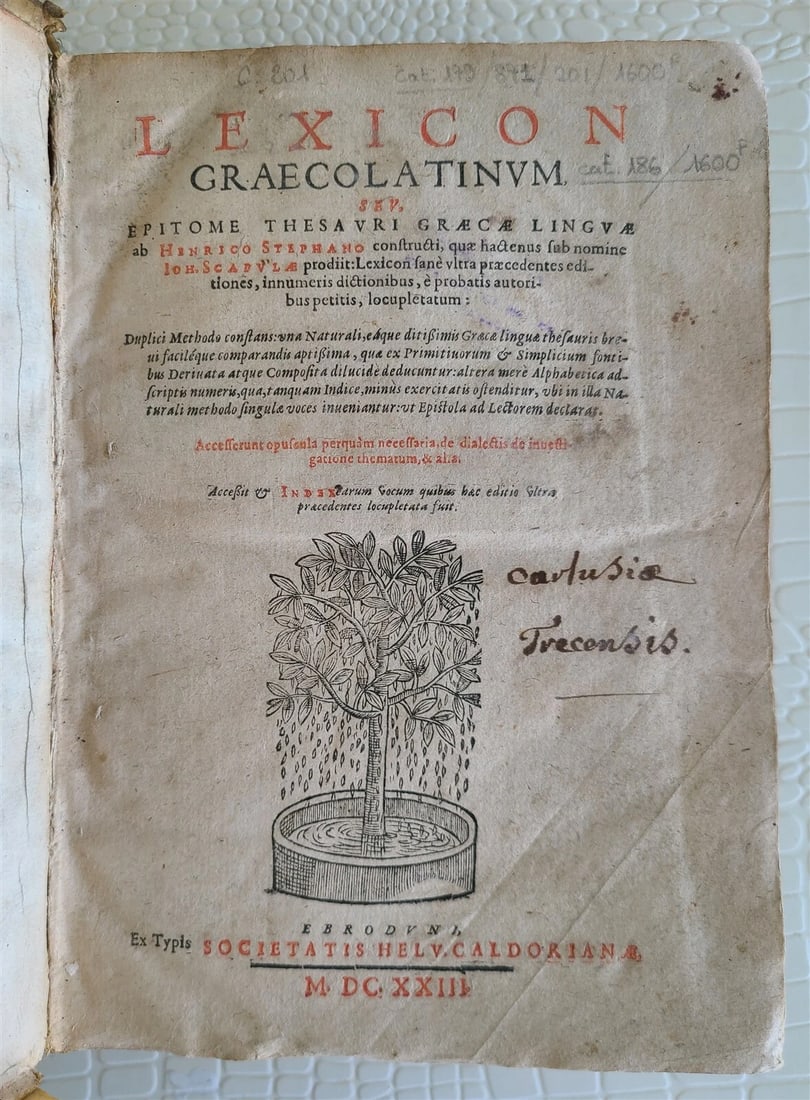 C. 801 cat. 179/871/201/1600
LEXICON
GRAECOLATINVM,
cat. 186 / 1600
SEV,
EPITOME THESAVRI GRÆCÆ LINGVÆ
ab HENRICO STEPHANO conſtructi, quæ hactenus ſub nomine
IOH. SCAPVLÆ prodiit: Lexicon ſanè vltra præcedentes edi-
tiones, innumeris dictionibus, è probatis autori-
bus petitis, locupletatum:
Duplici Methodo conſtans: vna Naturali, eáque ditißimis Græcæ linguæ theſauris bre-
ui faciléque comparandis aptißima, quæ ex Primitiuorum & Simplicium fonti-
bus Deriuata atque Compoſita dilucide deducuntur: altera merè Alphabetica ad-
ſcriptis numeris, qua, tanquam Indice, minùs exercitatis oſtenditur, vbi in illa Na-
turali methodo ſingulæ voces inueniantur: vt Epiſtola ad Lectorem declarat.
Acceſſerunt opuſcula perquàm neceſſaria, de dialectis de inueſti-
gatione thematum, & alia.
Acceßit & INDEX earum vocum quibus hæc editio vltra
præcedentes locupletata fuit.
Cartusiæ
Trecensis.
EBRODVNI,
Ex Typis SOCIETATIS HELV. CALDORIANÆ,
M. DC. XXIII